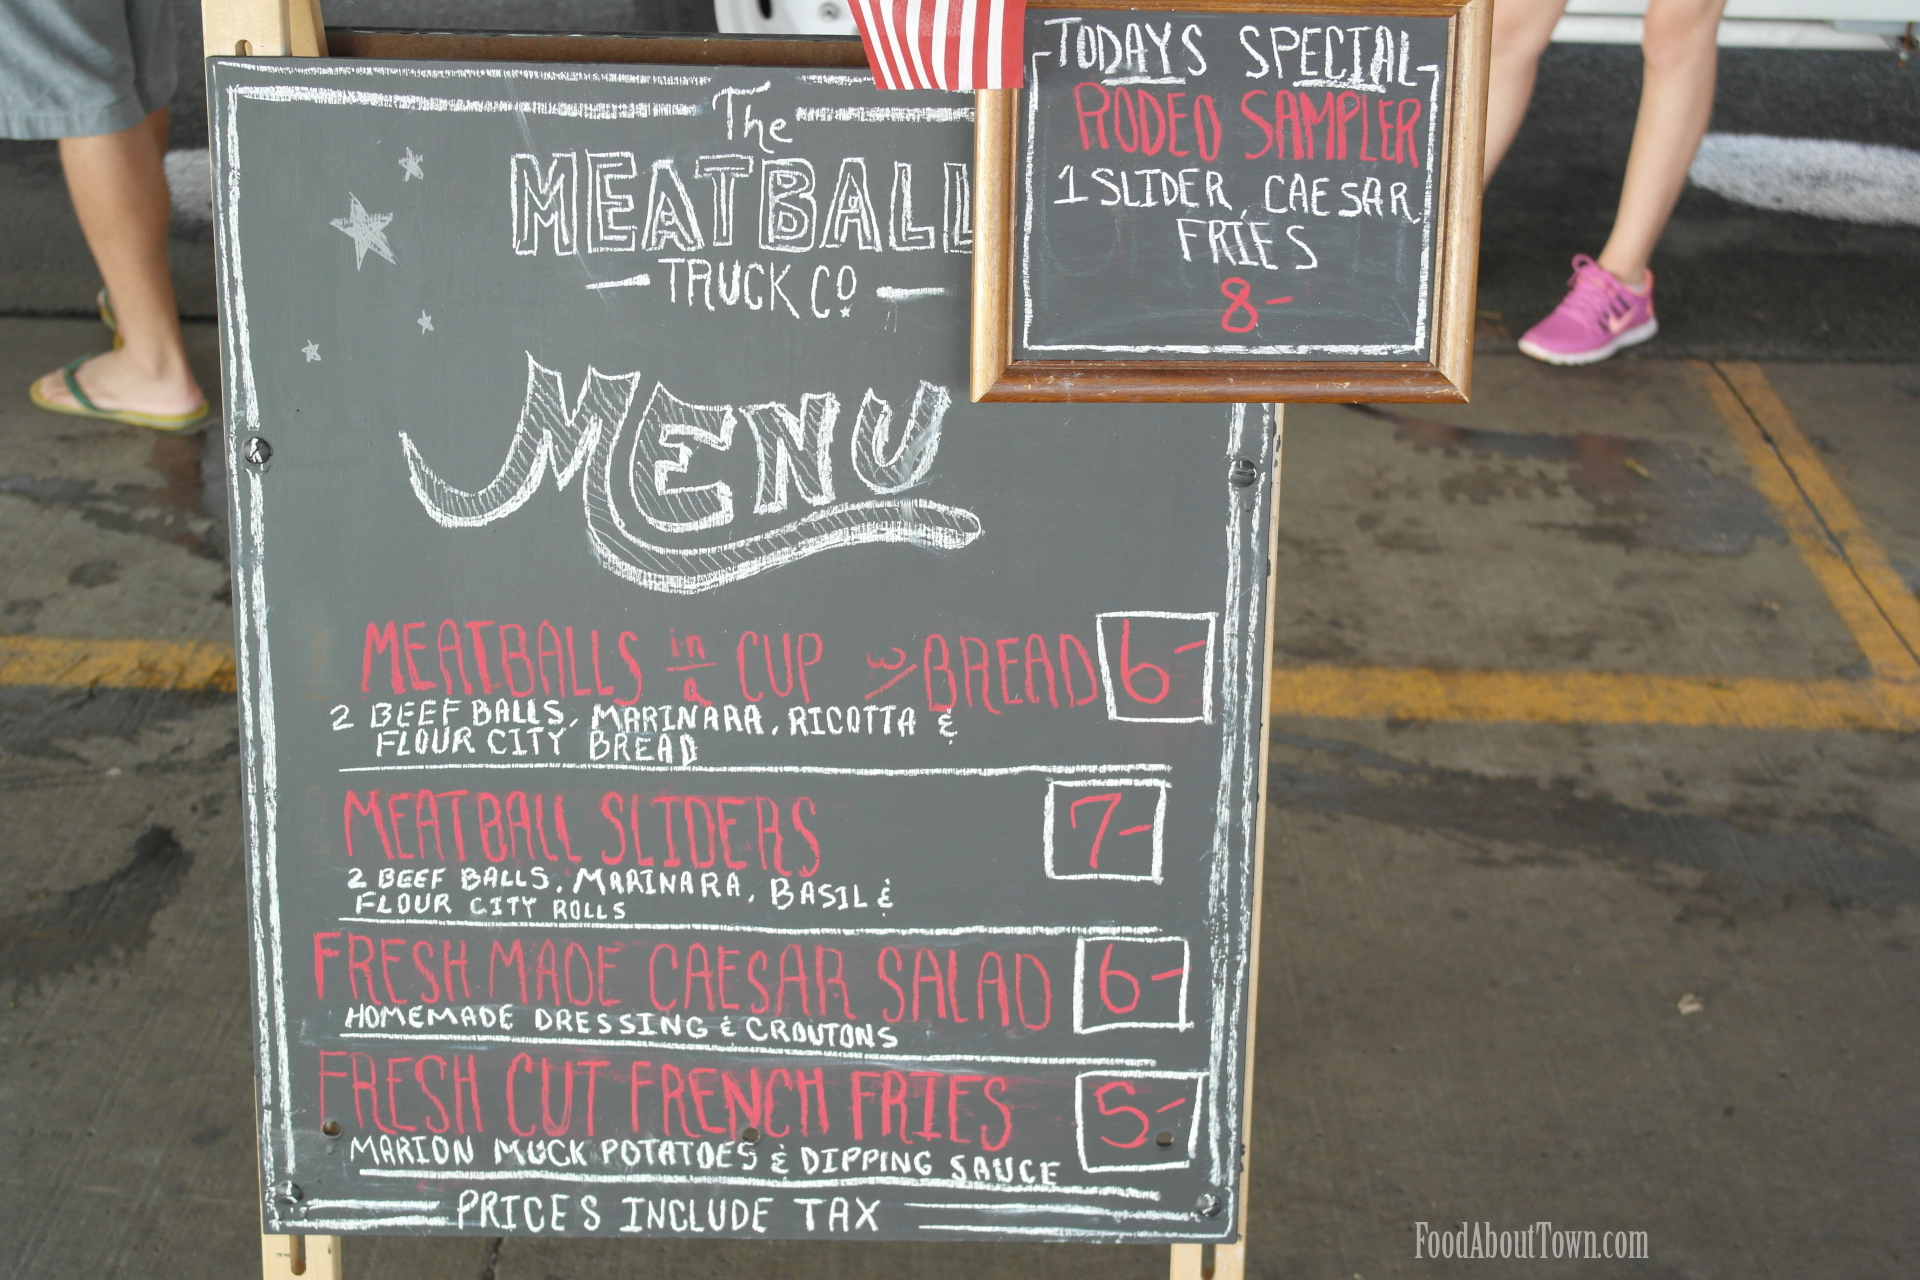 The
MEATBALL
TRUCK CO.
MENU
MEATBALLS in a CUP w/ BREAD 6-
2 BEEF BALLS, MARINARA, RICOTTA &
FLOUR CITY BREAD
MEATBALL SLIDERS 7-
2 BEEF BALLS, MARINARA, BASIL &
FLOUR CITY ROLLS
FRESH MADE CAESAR SALAD 6-
HOMEMADE DRESSING & CROUTONS
FRESH CUT FRENCH FRIES 5-
MARION MUCK POTATOES & DIPPING SAUCE
PRICES INCLUDE TAX
TODAYS SPECIAL
RODEO SAMPLER
1 SLIDER, CAESAR,
FRIES
8-
FoodAboutTown.com